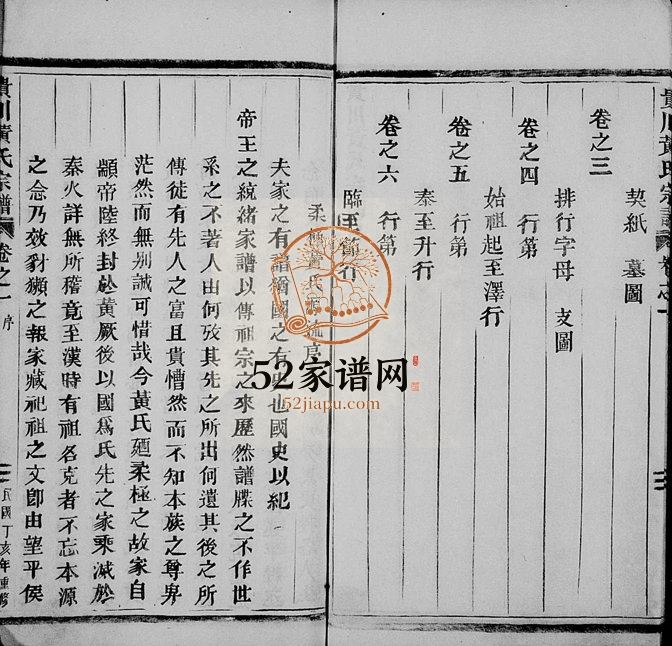 契紙 墓圖
卷之三
排行字母 支圖
卷之四 行第
始祖起至澤行
卷之五 行第
泰至升行
卷之六 行第
臨至節行
柔極黃氏源流序
夫家之有譜猶國之有史也國史以紀
帝王之統緒家譜以傳祖宗之來歷然譜牒之不作世
系之不著人由何攷其先之所出何遺其後之所
傳徒有先人之富且貴懵然而不知本族之尊卑
茫然而無別誠可惜哉今黃氏廼柔極之故家自
顓帝陸終封於黃厥後以國爲氏先之家乘滅於
秦火詳無所稽竟至漢時有祖名克者不忘本源
之念乃效豺獺之報家藏祀祖之文卽由望平侯
貴川黃氏宗譜 卷之一 序
民國丁亥年重修
貴川黃氏宗譜 卷之一
52家谱网
52jiapu.com